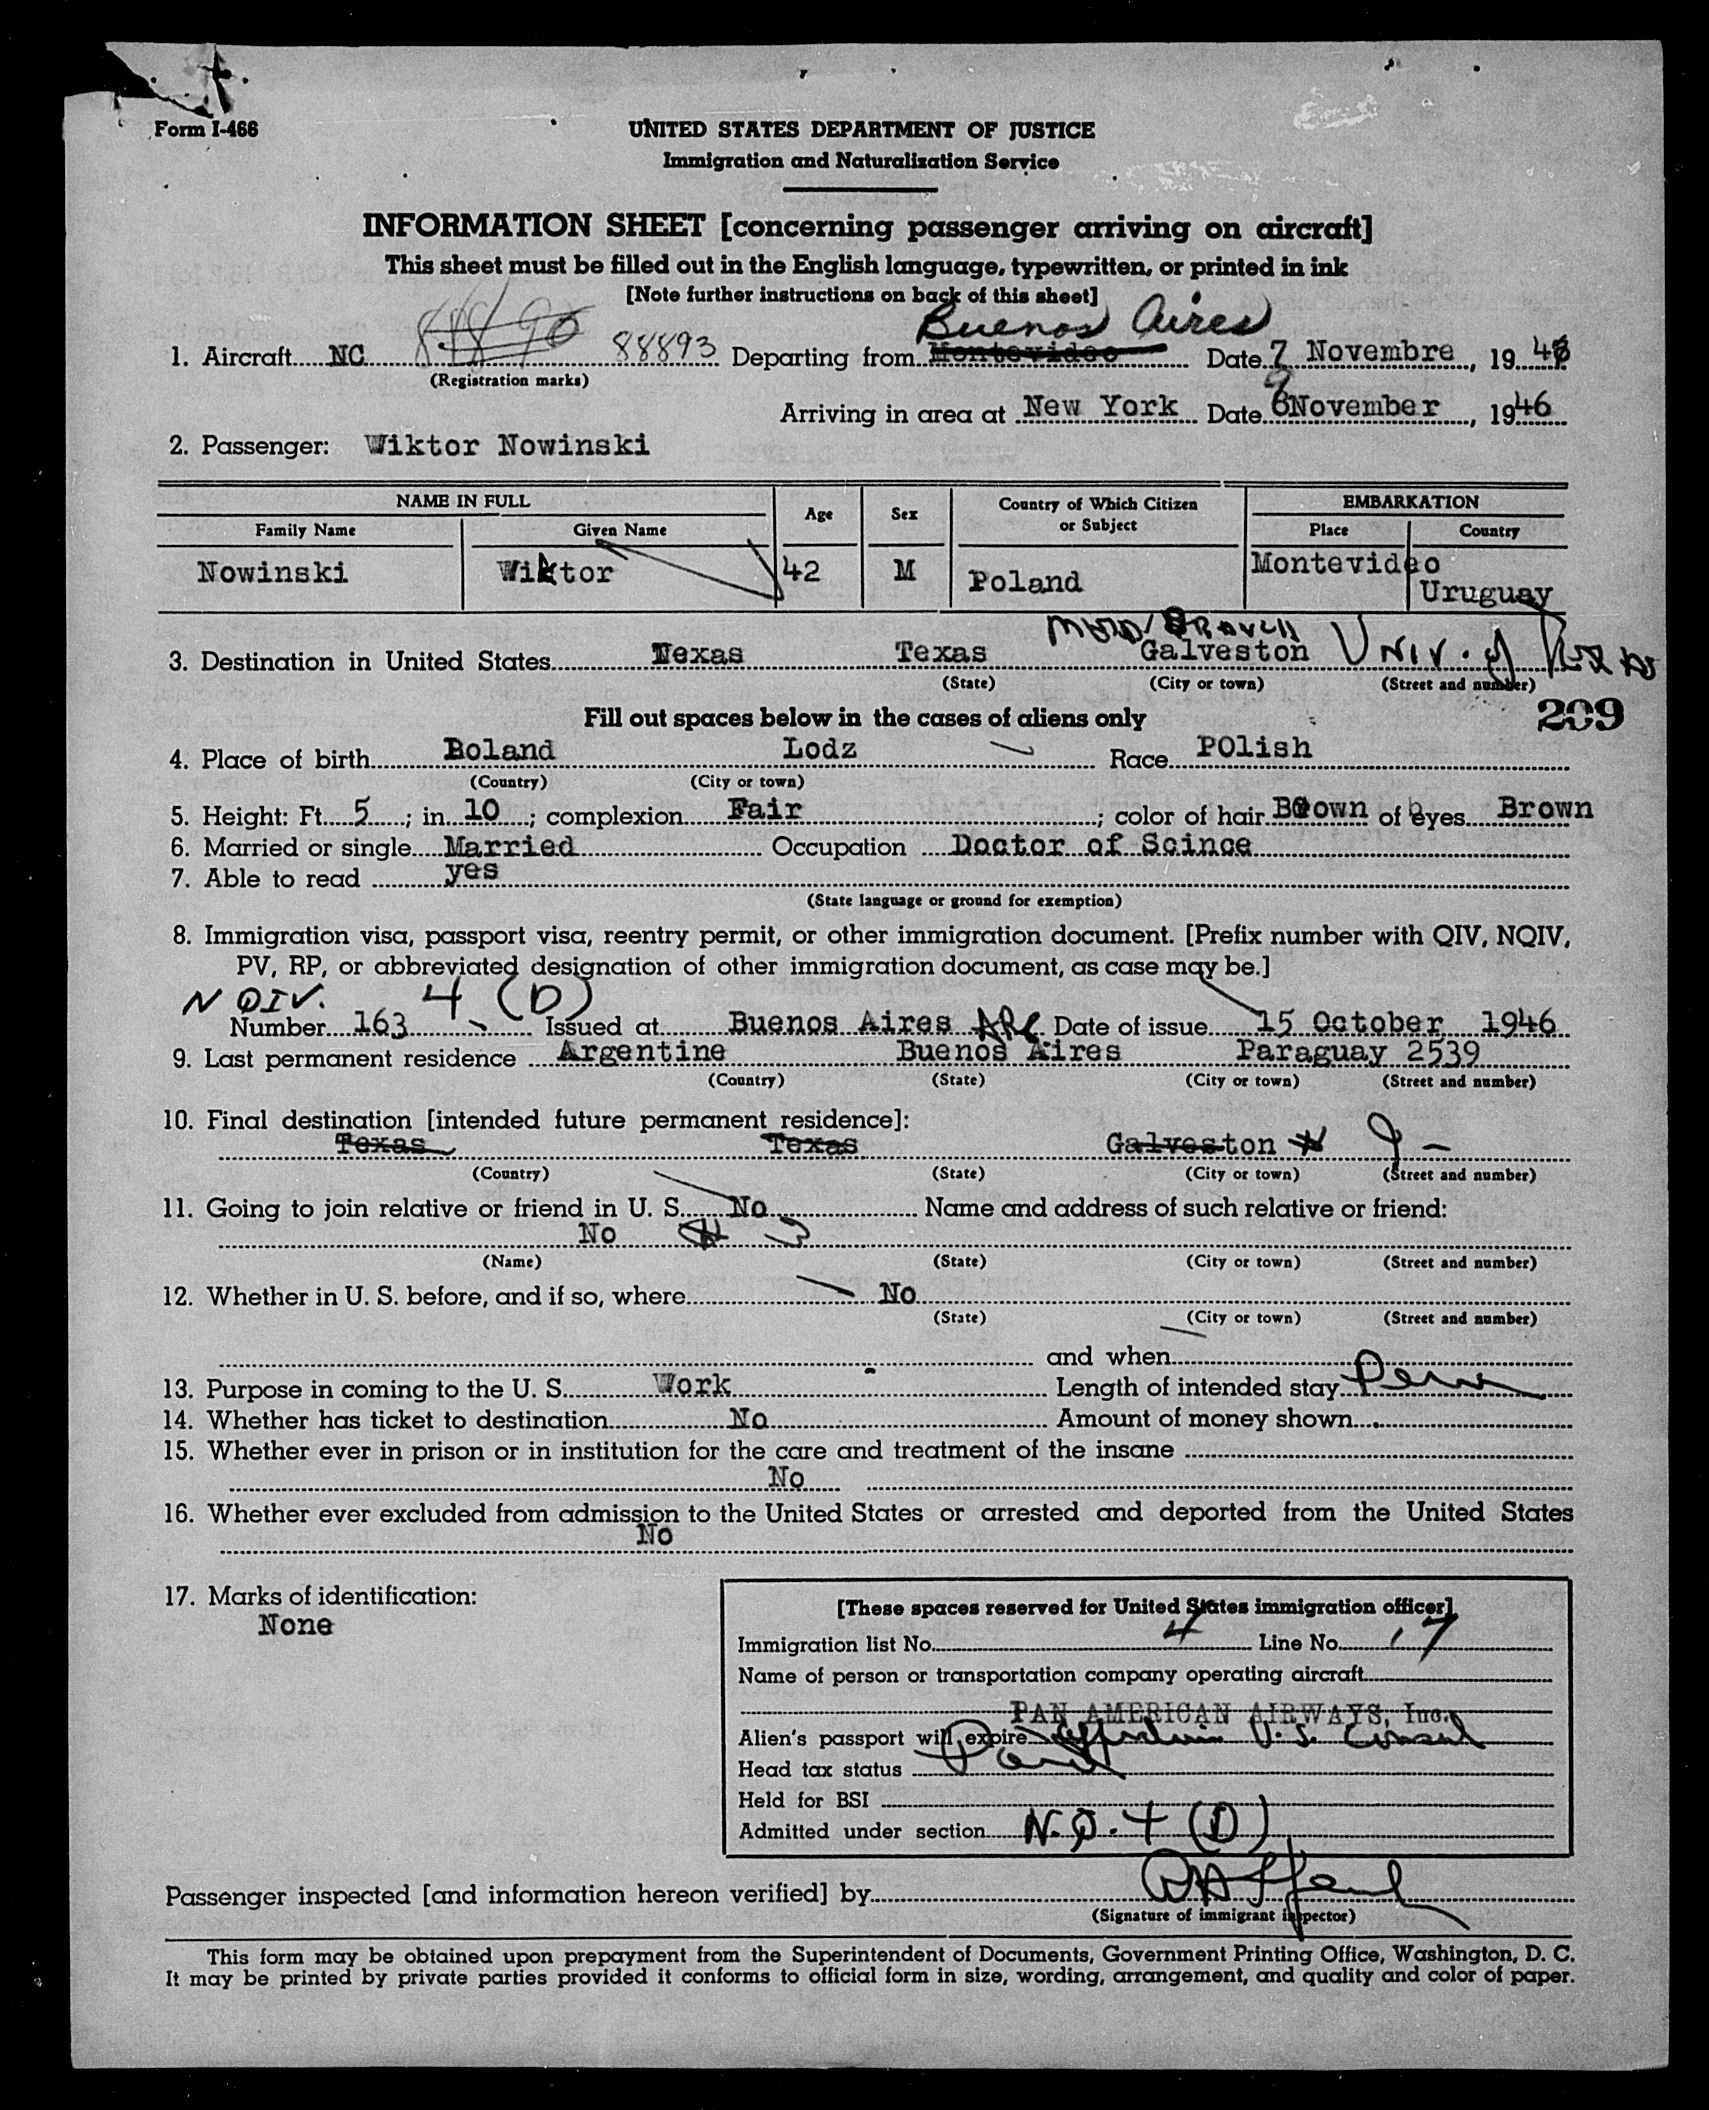 Form I-466
UNITED STATES DEPARTMENT OF JUSTICE
Immigration and Naturalization Service
INFORMATION SHEET [concerning passenger arriving on aircraft]
This sheet must be filled out in the English language, typewritten, or printed in ink
[Note further instructions on back of this sheet]
Buenos Aires
1. Aircraft NC 88893 Departing from Montevideo Date 7 Novembre, 1946
(Registration marks)
9
Arriving in area at New York Date 8 November, 1946
2. Passenger: Wiktor Nowinski
NAME IN FULL Age Sex Country of Which Citizen or Subject EMBARKATION
Family Name Given Name Place Country
Nowinski Wiktor 42 M Poland Montevideo Uruguay
BRANCH
3. Destination in United States Texas Texas Galveston Univ. of Texas
(State) (City or town) (Street and number)
Fill out spaces below in the cases of aliens only 209
4. Place of birth Poland Lodz Race POlish
(Country) (City or town)
5. Height: Ft. 5; in. 10; complexion Fair; color of hair Brown of eyes Brown
6. Married or single Married Occupation Doctor of Scince
7. Able to read yes
(State language or ground for exemption)
8. Immigration visa, passport visa, reentry permit, or other immigration document. [Prefix number with QIV, NQIV,
PV, RP, or abbreviated designation of other immigration document, as case may be.]
NQIV. 4 (D)
Number 163 Issued at Buenos Aires ARG Date of issue 15 October 1946
9. Last permanent residence Argentine Buenos Aires Paraguay 2539
(Country) (State) (City or town) (Street and number)
10. Final destination [intended future permanent residence]:
Texas Texas Galveston
(Country) (State) (City or town) (Street and number)
11. Going to join relative or friend in U. S. No Name and address of such relative or friend:
No
(Name) (State) (City or town) (Street and number)
12. Whether in U. S. before, and if so, where No
(State) (City or town) (Street and number)
and when
13. Purpose in coming to the U. S. Work Length of intended stay Perm
14. Whether has ticket to destination No Amount of money shown
15. Whether ever in prison or in institution for the care and treatment of the insane
No
16. Whether ever excluded from admission to the United States or arrested and deported from the United States
No
17. Marks of identification:
None
[These spaces reserved for United States immigration officer]
Immigration list No. 4 Line No. 17
Name of person or transportation company operating aircraft
PAN AMERICAN AIRWAYS, Inc.
Alien's passport will expire Affidavit U.S. Consul
Head tax status Paid
Held for BSI
Admitted under section N.Q. 4 (D)
Passenger inspected [and information hereon verified] by
(Signature of immigrant inspector)
This form may be obtained upon prepayment from the Superintendent of Documents, Government Printing Office, Washington, D. C.
It may be printed by private parties provided it conforms to official form in size, wording, arrangement, and quality and color of paper.